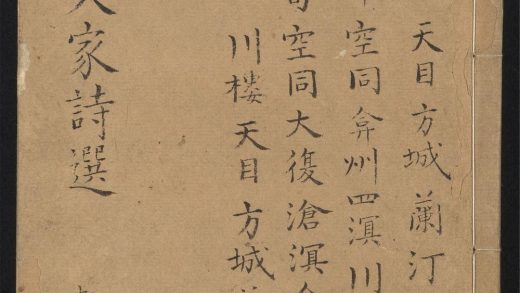 天目方城蘭汀
空同弇州四溟川
空同大復滄溟
川樓天目方城
家詩選